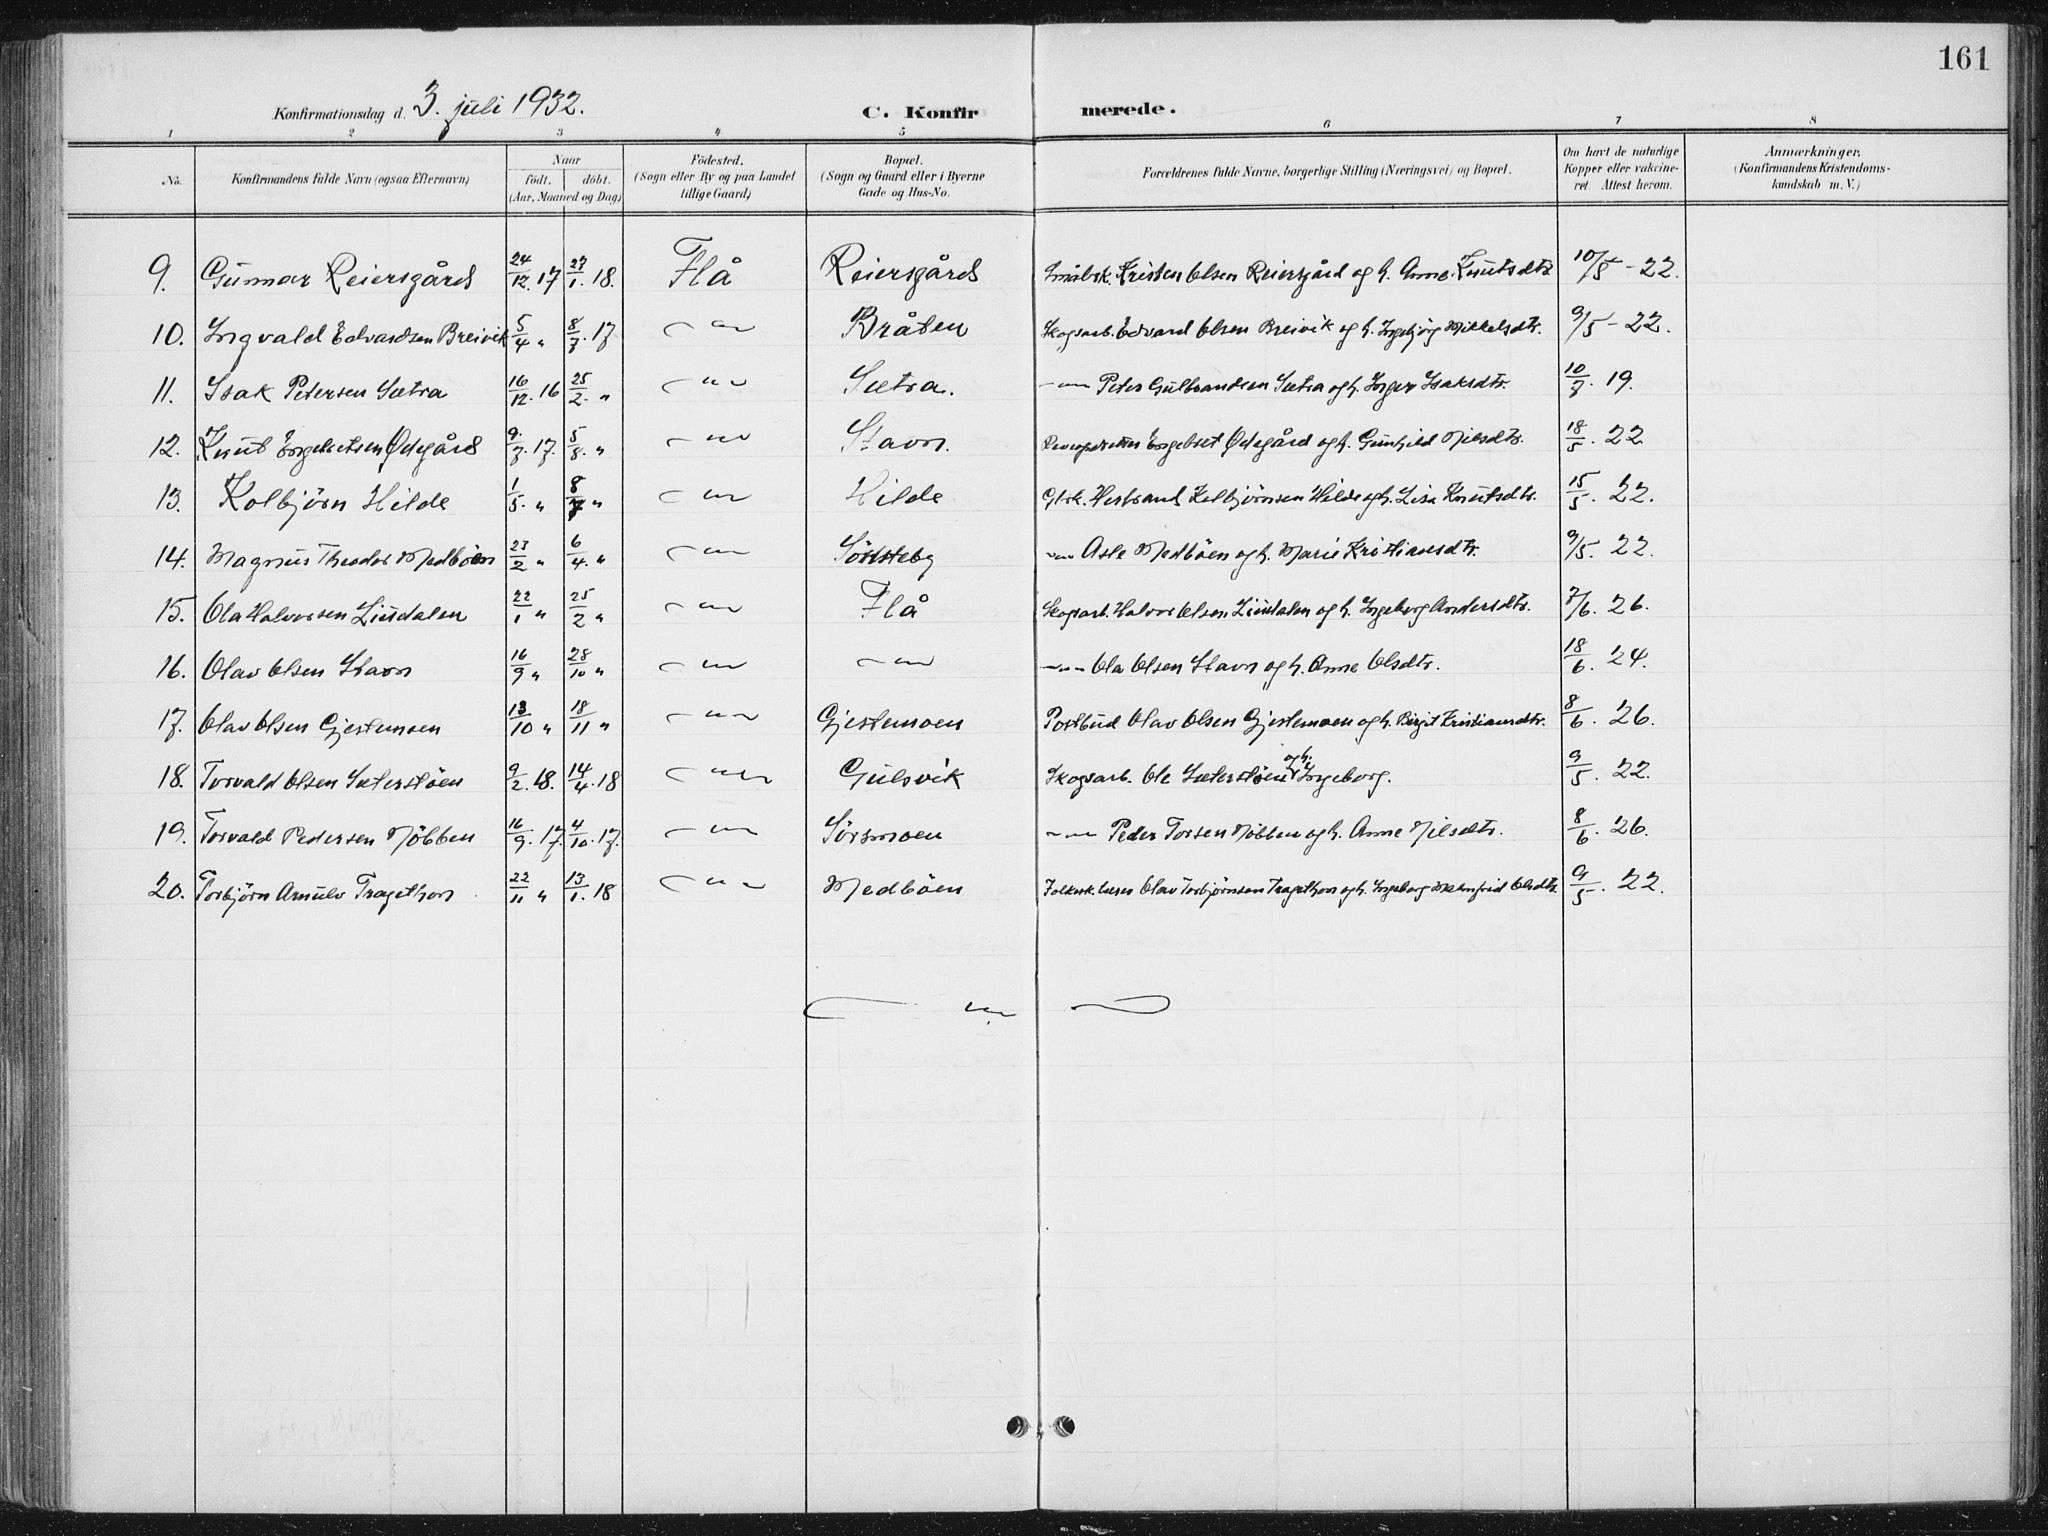 161
Konfirmationsdag d. 3. juli 1932. C. Konfirmerede.
1 2 3 4 5 6 7 8
No. Konfirmandens fulde Navn (ogsaa Efternavn) Naar födt. döbt. (Aar, Maaned og Dag) Födested. (Sogn eller By og paa Landet tillige Gaard) Bopæl. (Sogn og Gaard eller i Byerne Gade og Hus-No. Forældrenes fulde Navne, borgerlige Stilling (Næringsvei) og Bopæl. Om havt de naturlige Kopper eller vakcineret. Attest herom. Anmærkninger. (Konfirmandens Kristendomskundskab m. V.)
9. Gunnar Reiersgård 24/12. 17 27/1. 18. Flå Reiersgård Småbrk. Kristen Olsen Reiersgård og h. Anne Knutsdtr. 10/5 - 22.
10. Ingvald Edvardsen Breivik 5/4 " 8/7. 17 — " — Bråten Skogsarb. Edvard Olsen Breivik og h. Ingebjörg Mikkelsdtr. 9/5 - 22.
11. Isak Petersen Sætra 16/12. 16 25/2. " — " — Sætra. — " — Peter Gulbrandsen Sætra og h. Inger Isaksdtr. 10/7. 19.
12. Knut Engebretsen Ødegård 9/7. 17. 5/8. " — " — Stavn. Engebret Ødegård og h. Gunhild Nilsdtr. 18/5. 22
13. Kolbjörn Hilde 1/5. " 8/7 " — " — Hilde Gbrk. Herbrand Kolbjörnsen Hilde og h. Lisa Knutsdtr. 15/5. 22.
14. Magnus Theodor Medböen 23/2 " 6/4. " — " — Sörsteby — " — Asle Medböen og h. Marie Kristiansdtr. 9/5. 22.
15. Ola Halvorsen Lindalen 22/1 " 25/2 " — " — Flå Skogsarb. Halvor Olsen Lindalen og h. Ingeborg Andersdtr. 7/6. 26.
16. Olav Olsen Stavn 16/9 " 28/10 " — " — — " — — " — Ola Olsen Stavn og h. Anne Olsdtr. 18/6. 24.
17. Olav Olsen Gjestemoen 13/10 " 18/11 " — " — Gjestemoen Postbud Olav Olsen Gjestemoen og h. Birgit Kristiansdtr. 8/6. 26.
18. Torvald Olsen Sæterstöen 9/2. 18. 14/4. 18 — " — Gulsvik Skogsarb. Ole Sæterstöen og h. Ingeborg. 9/5. 22.
19. Torvald Pedersen Nöbben 16/9. 17. 4/10. 17. — " — Sörsmoen — " — Peder Torsen Nöbben og h. Anne Nilsdtr. 8/6. 26.
20. Torbjörn Arnulv Tragethon 22/11 " 13/1. 18 — " — Medböen Folkesk. lærer Olav Torbjörnsen Tragethon og h. Ingeborg Olsdtr. 9/5. 22.
— " —